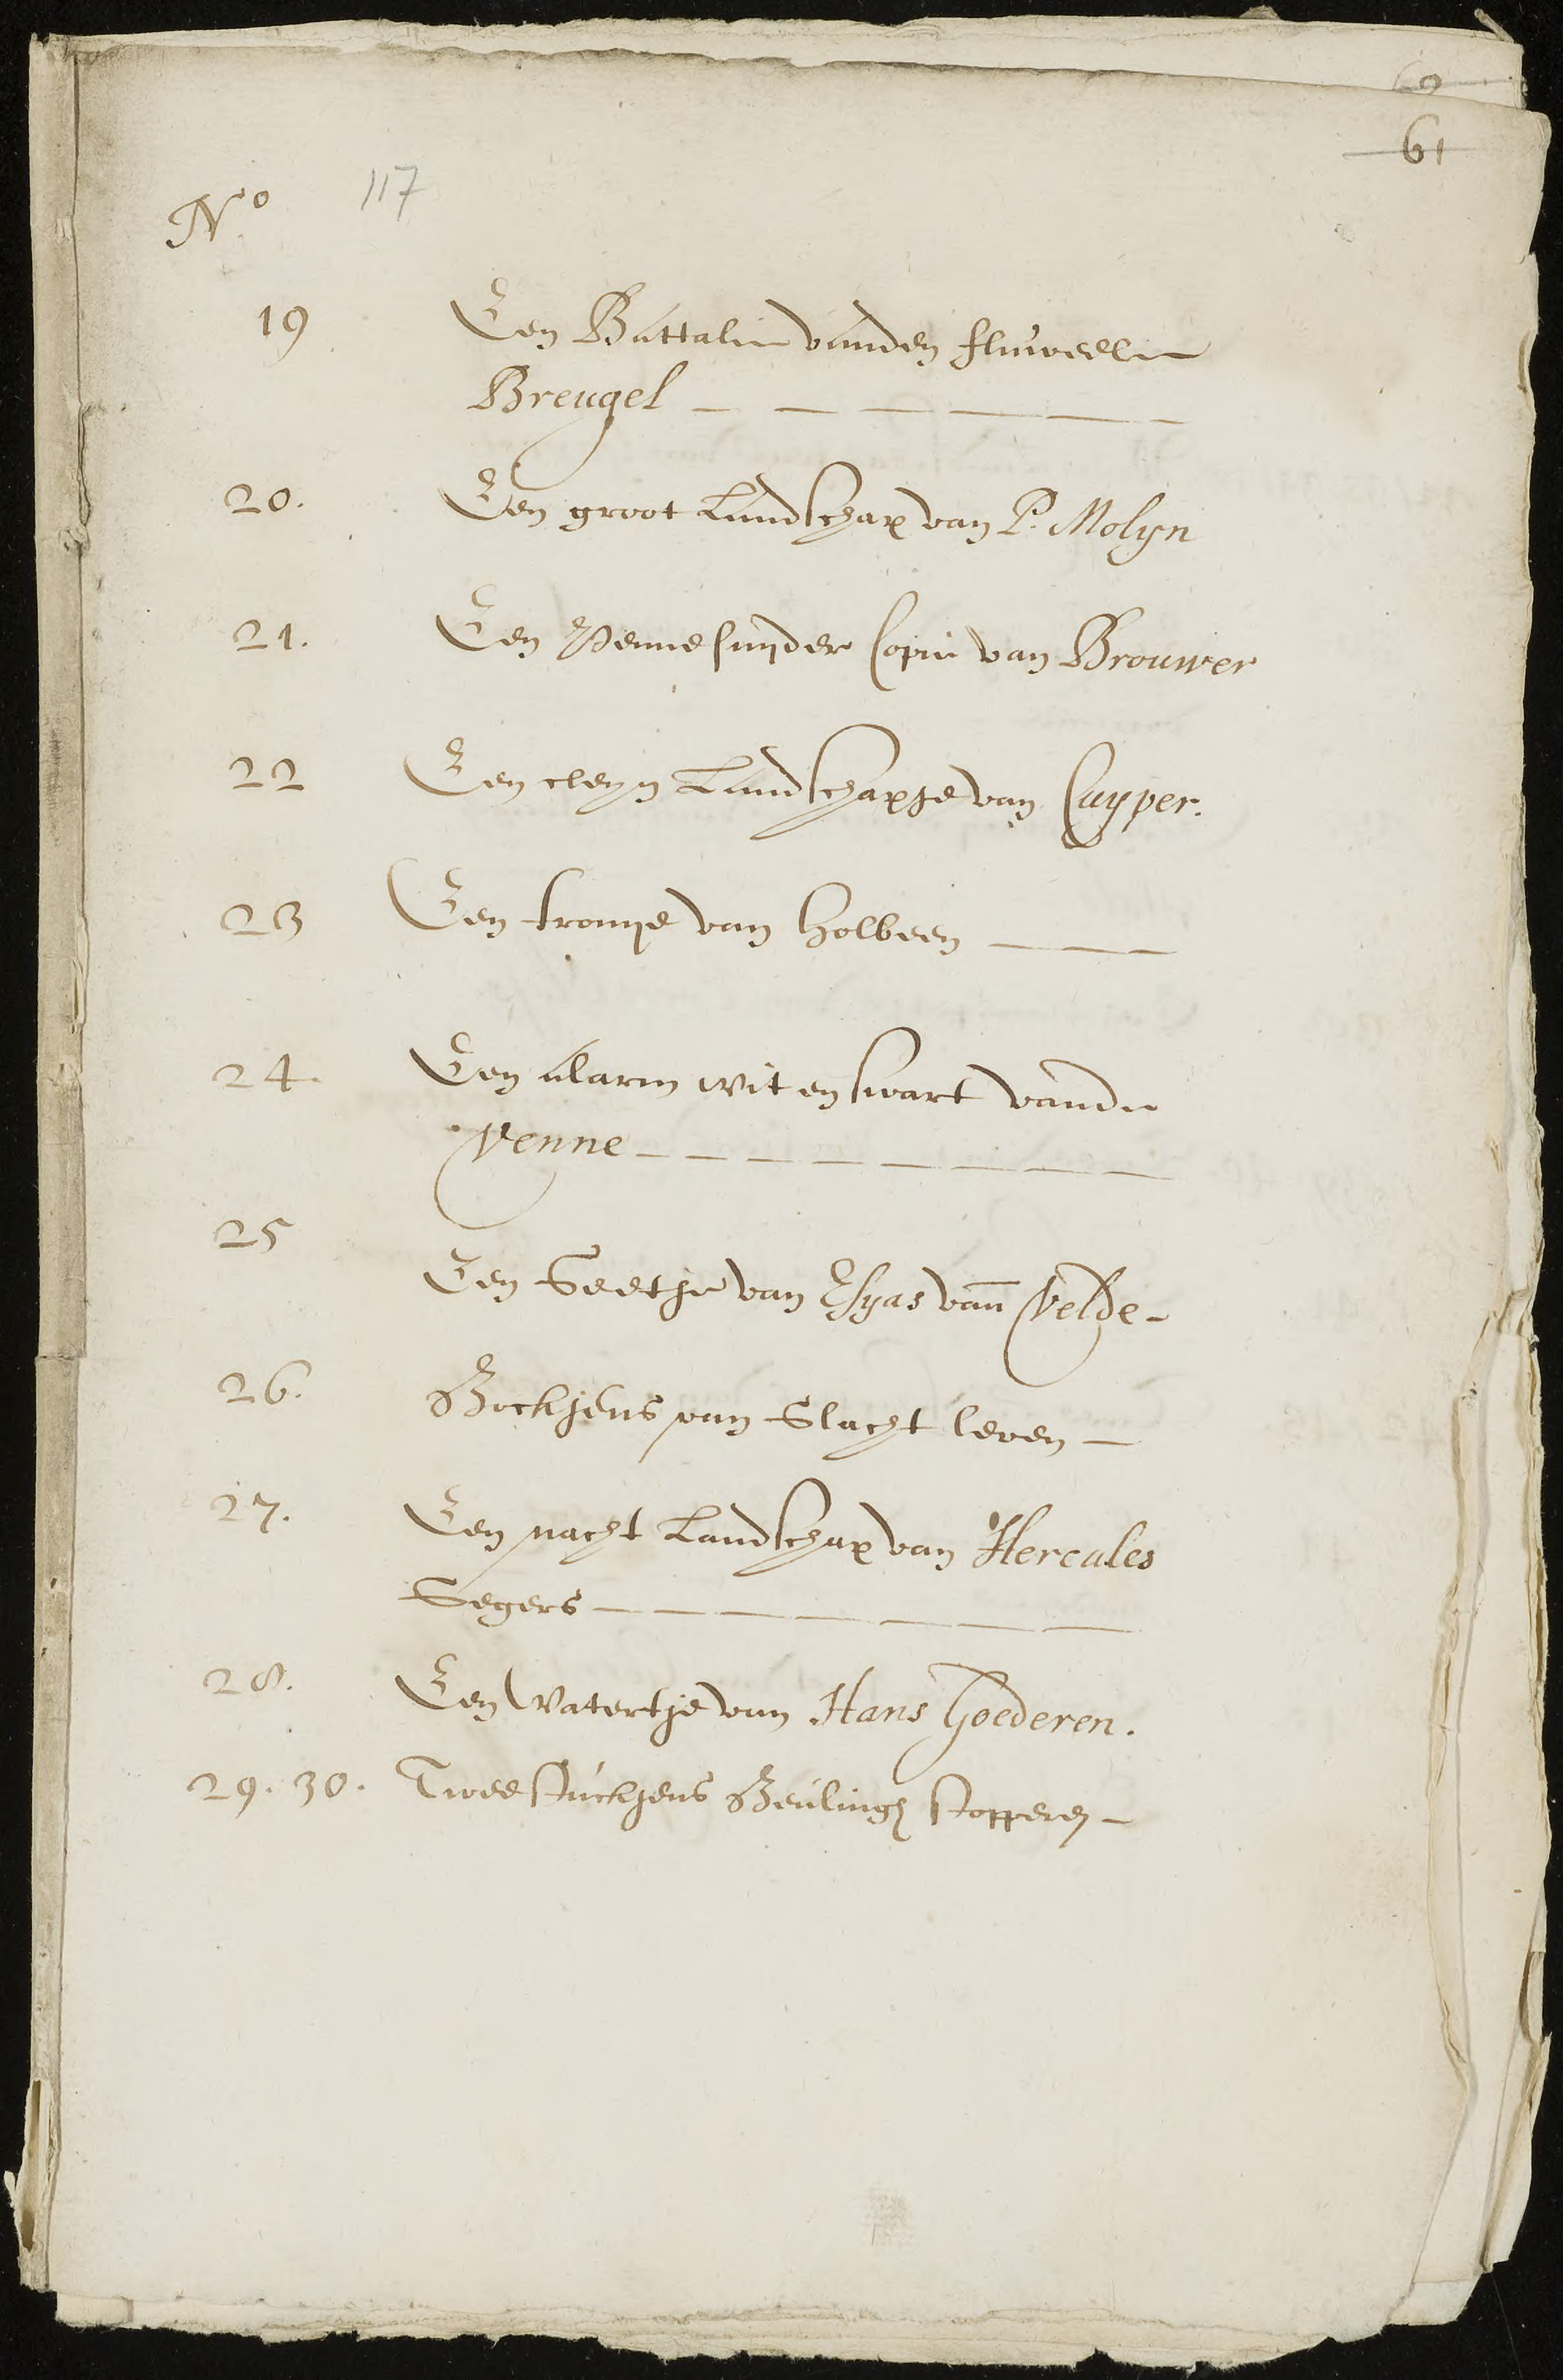 60
61
117
No
19 Een Battalie vanden fluweelen
Breugel
20. Een groot Landschap van P. Molyn
21. Een Pennesnyder Copie van Brouwer
22 Een cleyn Landschapje van Cuyper.
23 Een tronije van Holbeen
24. Een alarm wit en swart vande
Venne
25
Een Seetje van Esyas vañ Velde
26. Bockjens van Slacht leven
27. Een nacht Landschap van Hercules
Segers
28. Een Watertje van Hans Goederen.
29. 30. Twee stuckjens Beuling stopperen